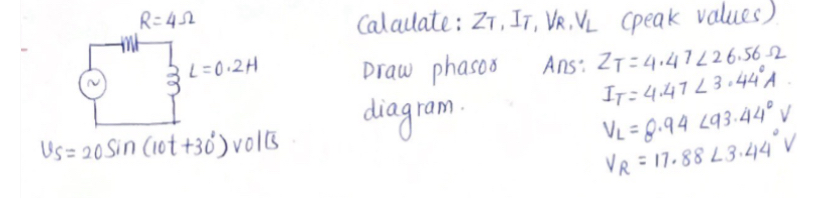 R=4Ω
L=0.2H
Us=20Sin (10t+30°)volts
Calculate: ZT, IT, VR, VL (peak values)
Draw phasor diagram.
Ans: ZT=4.47∠26.56 Ω
IT=4.47∠3.44°A.
VL=8.94 ∠93.44° V
VR = 17.88∠3.44°V